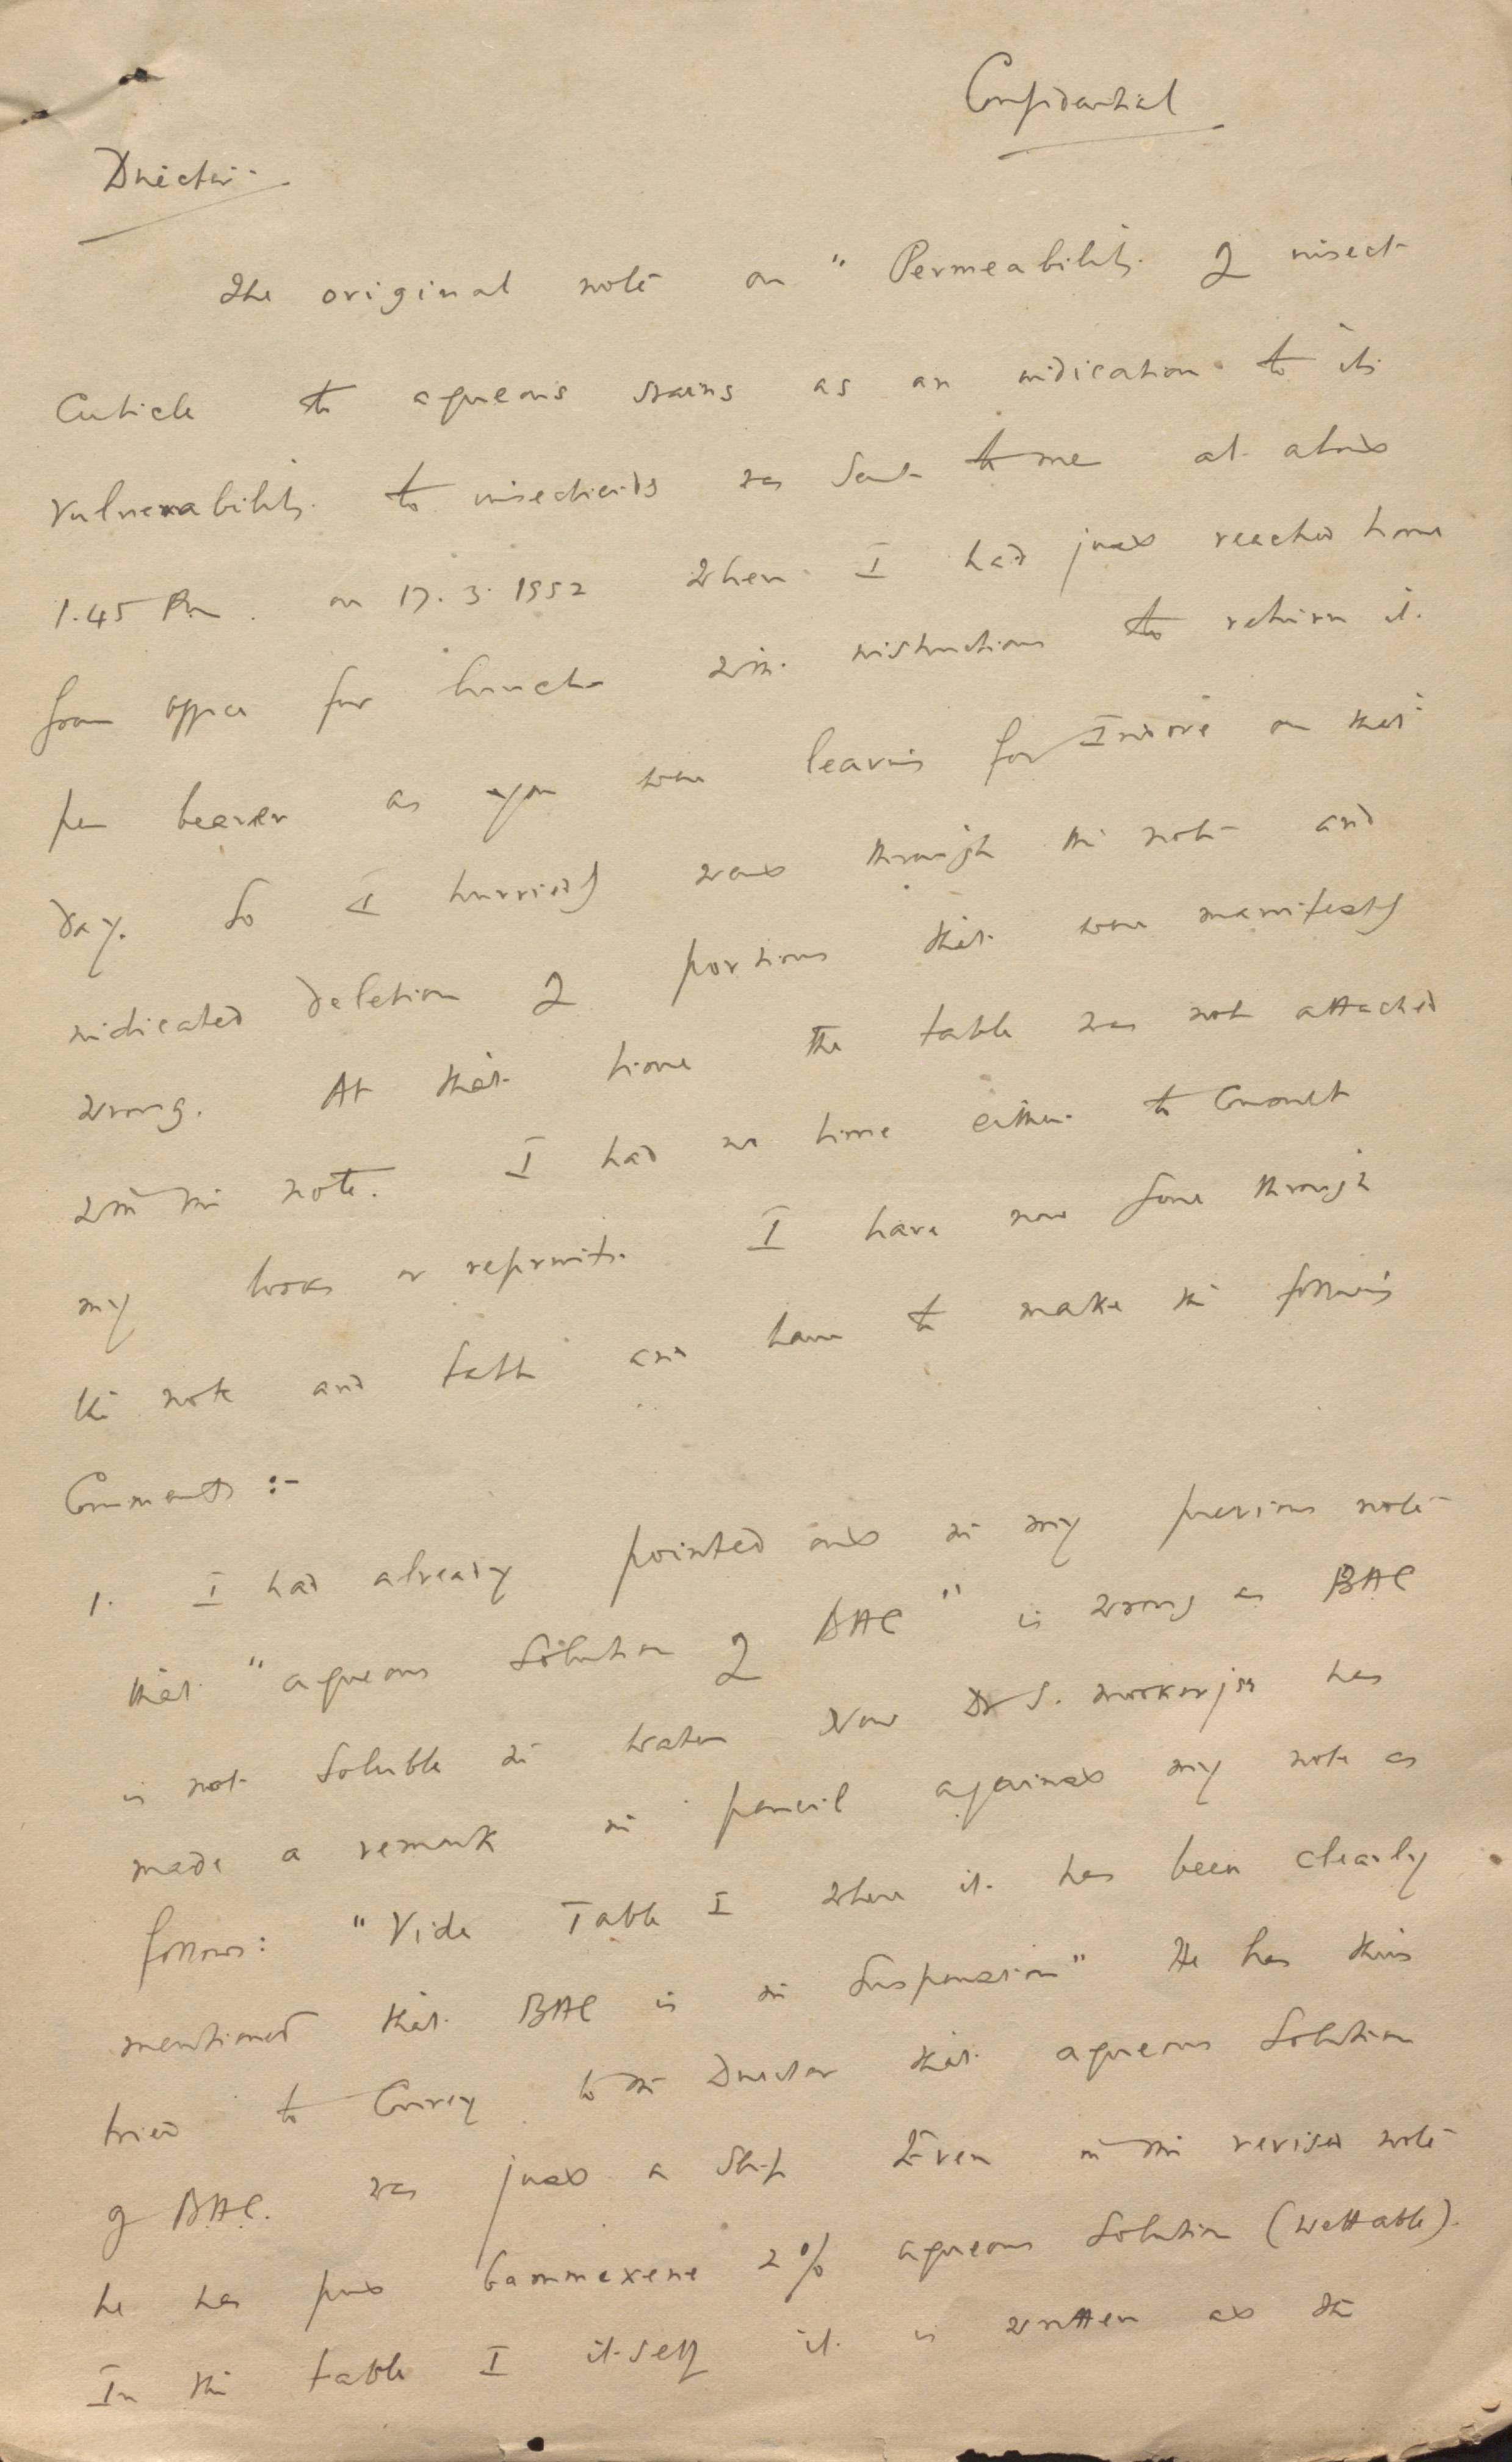 Confidential
Director.
The original note on "Permeability of insect
Cuticle to aqueous stains as an indication to its
Vulnerability to insecticides was sent to me at about
1.45 Pm. on 17.3.1952 when I had just reached home
from office for lunch with instructions to return it
per bearer as you were leaving for Indore on that
day. So I hurriedly went through the note and
indicated deletion of portions that were manifestly
wrong. At that time the table was not attached
with the note. I had no time either to consult
my books or reprints. I have now gone through
the note and table and have to make the following
Comments :-
1. I had already pointed out in my previous note
that "aqueous solution of BHC" is wrong as BHC
is not soluble in water. Now Dr S. Mookerjee has
made a remark in pencil against my note as
follows: "Vide Table I where it has been clearly
mentioned that BHC is in suspension" He has thus
tried to convey to the Director that aqueous solution
of B.H.C. was just a slip. Even in the revised note
he has put Gammexene 2% aqueous solution (wettable).
In the table I itself it is written at the